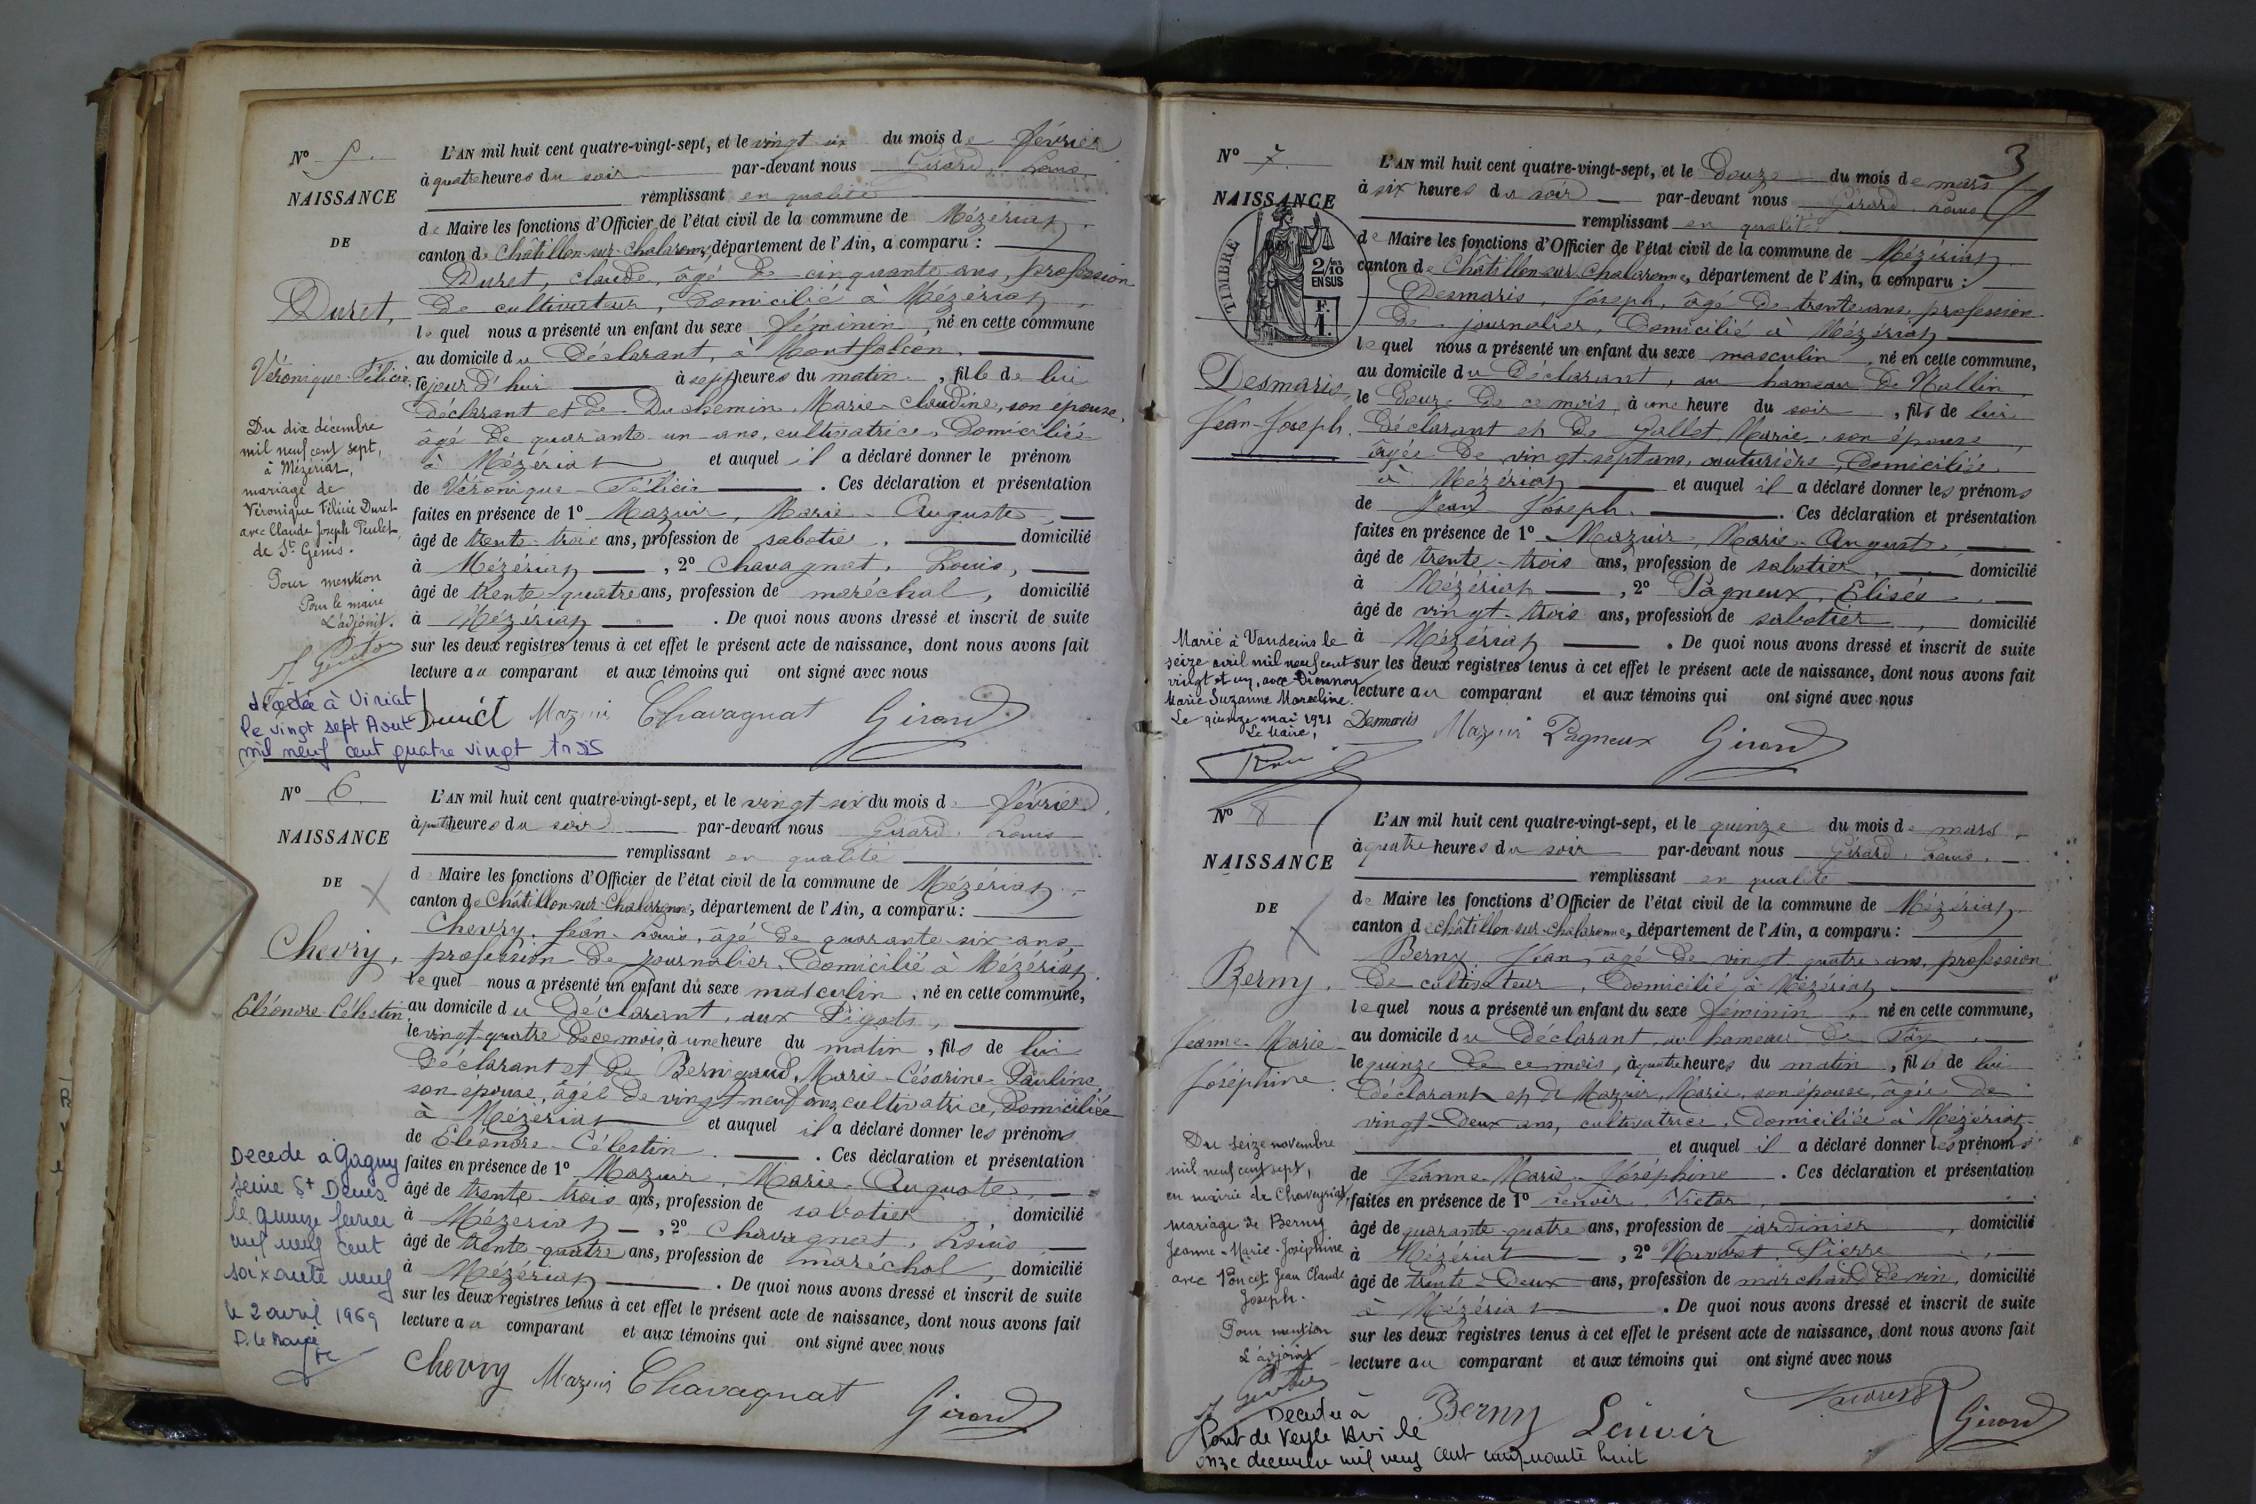 N° 5.
NAISSANCE
DE
Duret,
Véronique-Félicie,
Du dix décembre
mil neuf cent sept,
à Mézériat,
mariage de
Véronique Félicie Duret
avec Claude Joseph
de St Genis.
Pour mention
Pour le maire
L'adjoint.
décédée à Viriat
le vingt sept Aout
mil neuf cent quatre vingt trois
L'AN mil huit cent quatre-vingt-sept, et le vingt six du mois de février
à quatre heures du soir par-devant nous Girard Louis,
remplissant en qualité
de Maire les fonctions d'Officier de l'état civil de la commune de Mézériat
canton de Châtillon-sur-Chalaronne, département de l'Ain, a comparu :
Duret, Claude, âgé de cinquante ans, profession
de cultivateur, domicilié à Mézériat
lequel nous a présenté un enfant du sexe féminin, né en cette commune
au domicile du déclarant, à Montfalcon.
le jour d'hui à sept heures du matin, fille de lui
déclarant et de Duchemin, Marie-Claudine, son épouse,
âgé de quarante-un-ans, cultivatrice, domiciliée
à Mézériat et auquel il a déclaré donner le prénom
de Véronique-Félicie. Ces déclaration et présentation
faites en présence de 1° Mazuir, Marie-Auguste,
âgé de trente-trois ans, profession de sabotier, domicilié
à Mézériat, 2° Chavagnat, Louis,
âgé de trente-quatre ans, profession de maréchal, domicilié
à Mézériat. De quoi nous avons dressé et inscrit de suite
sur les deux registres tenus à cet effet le présent acte de naissance, dont nous avons fait
lecture au comparant et aux témoins qui ont signé avec nous
Duret Mazuir Chavagnat Girard
N° 6.
NAISSANCE
DE
Chevry,
Eléonore-Célestin
Decede à Gagny
Seine St Denis
le quinze fevrier
mil neuf cent
soixante neuf
le 2 avril 1969
P. le Maire
L'AN mil huit cent quatre-vingt-sept, et le vingt-six du mois de février
à quatre heures du soir par-devant nous Girard Louis
remplissant en qualité
de Maire les fonctions d'Officier de l'état civil de la commune de Mézériat
canton de Châtillon-sur-Chalaronne, département de l'Ain, a comparu :
Chevry, Jean-Louis, âgé de quarante-six ans,
profession de journalier, domicilié à Mézériat.
lequel nous a présenté un enfant du sexe masculin, né en cette commune,
au domicile du déclarant, aux Pigots,
le vingt-quatre de ce mois à une heure du matin, fils de lui
déclarant et de Bernigaud, Marie-Césarine-Pauline,
son épouse, âgée de vingt neuf ans, cultivatrice, domiciliée
à Mézériat et auquel il a déclaré donner les prénoms
de Eléonore-Célestin. Ces déclaration et présentation
faites en présence de 1° Mazuir, Marie-Auguste,
âgé de trente-trois ans, profession de sabotier domicilié
à Mézériat, 2° Chavagnat, Louis
âgé de trente-quatre ans, profession de maréchal, domicilié
à Mézériat. De quoi nous avons dressé et inscrit de suite
sur les deux registres tenus à cet effet le présent acte de naissance, dont nous avons fait
lecture au comparant et aux témoins qui ont signé avec nous
Chevry Mazuir Chavagnat Girard
3
N° 7.
NAISSANCE
TIMBRE
2/10 EN SUS
F. 1.
Desmaris,
Jean-Joseph.
Marié à Vandeins le
seize avril mil neuf cent
vingt et un, avec
Marie Suzanne Marceline.
Le quinze mai 1921
Le Maire,
L'AN mil huit cent quatre-vingt-sept, et le douze du mois de mars
à six heures du soir par-devant nous Girard Louis
remplissant en qualité
de Maire les fonctions d'Officier de l'état civil de la commune de Mézériat
canton de Châtillon-sur-Chalaronne, département de l'Ain, a comparu :
Desmaris, Joseph, âgé de trente ans, profession
de journalier, domicilié à Mézériat
lequel nous a présenté un enfant du sexe masculin, né en cette commune,
au domicile du déclarant, au hameau de Nallin
le douze de ce mois, à une heure du soir, fils de lui
déclarant et de Gallet, Marie, son épouse,
âgée de vingt-sept ans, couturière, domiciliée
à Mézériat et auquel il a déclaré donner les prénoms
de Jean Joseph. Ces déclaration et présentation
faites en présence de 1° Mazuir, Marie-Auguste,
âgé de trente-trois ans, profession de sabotier, domicilié
à Mézériat, 2° Pagneux, Elisée,
âgé de vingt-trois ans, profession de sabotier, domicilié
à Mézériat. De quoi nous avons dressé et inscrit de suite
sur les deux registres tenus à cet effet le présent acte de naissance, dont nous avons fait
lecture au comparant et aux témoins qui ont signé avec nous
Desmaris Mazuir Pagneux Girard
N° 8
NAISSANCE
DE
Berny,
Jeanne-Marie-
Joséphine.
Du seize novembre
mil neuf cent sept,
en mairie de Chaveyriat,
mariage de Berny
Jeanne-Marie-Joséphine
avec Poncet Jean Claude
Joseph.
Pour mention
L'adjoint
Decedee à
Pont de Veyle Ain le
onze decembre mil neuf cent cinquante huit
L'AN mil huit cent quatre-vingt-sept, et le quinze du mois de mars
à quatre heures du soir par-devant nous Girard, Louis.
remplissant en qualité
de Maire les fonctions d'Officier de l'état civil de la commune de Mézériat
canton de Châtillon-sur-Chalaronne, département de l'Ain, a comparu :
Berny, Jean, âgé de vingt quatre ans, profession
de cultivateur, domicilié à Mézériat
lequel nous a présenté un enfant du sexe féminin, né en cette commune,
au domicile du déclarant, au hameau de
le quinze de ce mois, à quatre heures du matin, fille de lui
déclarant et de Mazuir, Marie, son épouse, âgée de
vingt-deux ans, cultivatrice, domiciliée à Mézériat
et auquel il a déclaré donner les prénoms
de Jeanne-Marie-Joséphine. Ces déclaration et présentation
faites en présence de 1° Lenoir, Victor
âgé de quarante-quatre ans, profession de jardinier, domicilié
à Mézériat, 2° Navoret, Pierre
âgé de trente-deux ans, profession de marchand de vin, domicilié
à Mézériat. De quoi nous avons dressé et inscrit de suite
sur les deux registres tenus à cet effet le présent acte de naissance, dont nous avons fait
lecture au comparant et aux témoins qui ont signé avec nous
Berny Lenoir Navoret Girard